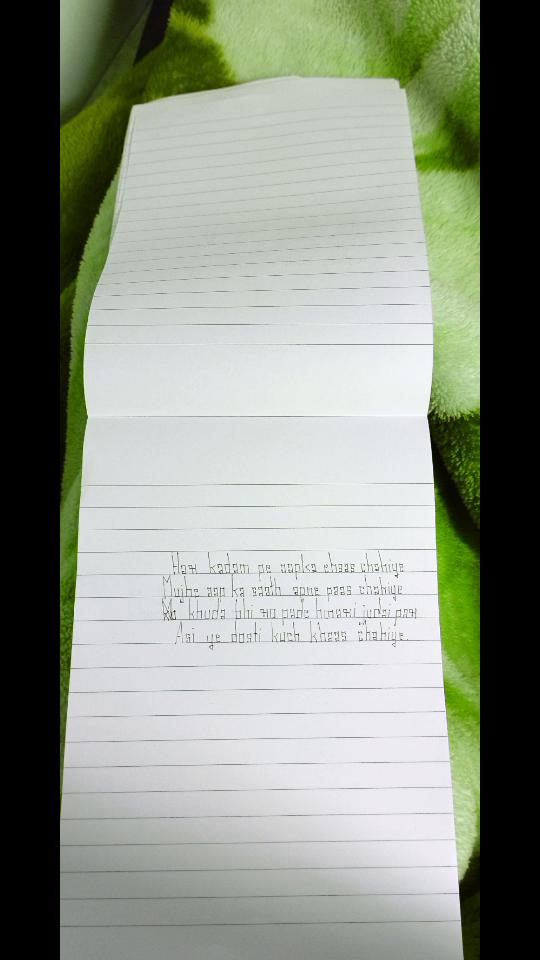 Har kadam pe aapka ehsas chahiye
Mujhe aap ka saath apne paas chahiye
Ko khuda bhi ro pade humari judai par
Asi ye dosti kuch khaas chahiye.